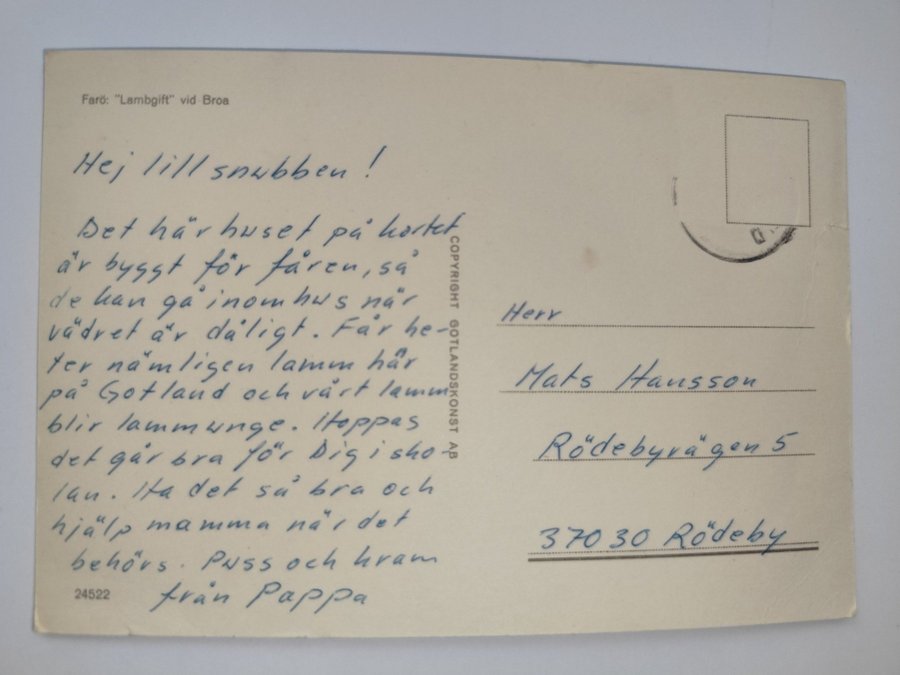 Farö: "Lambgift" vid Broa
Hej lill snubben!
Det här huset på kortet
är byggt för fåren, så
de kan gå inomhus när
vädret är dåligt. Får he-
ter nämligen lamm här
på Gotland och vårt lamm
blir lammunge. Hoppas
det går bra för Dig i sko-
lan. Ha det så bra och
hjälp mamma när det
behövs. Puss och kram
från Pappa
24522
COPYRIGHT GOTLANDSKONST AB
Herr
Mats Hansson
Rödebyvägen 5
37030 Rödeby